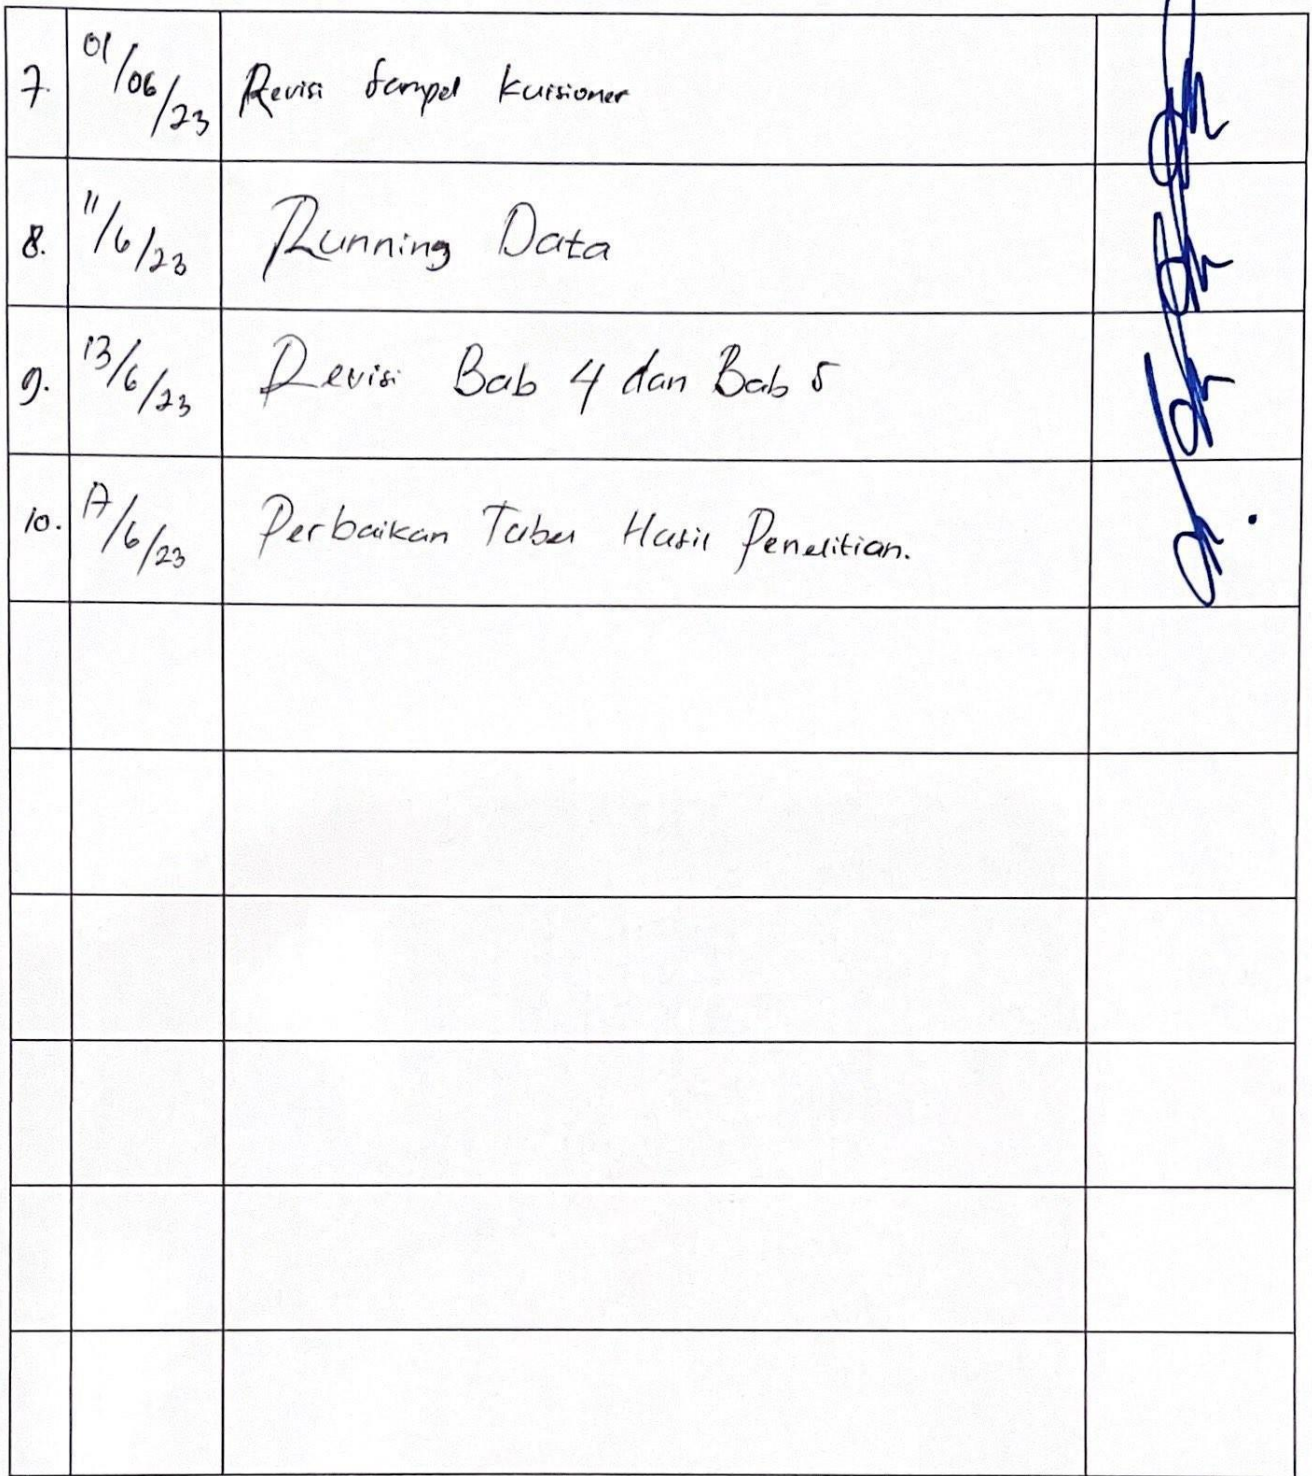 7. 01/06/23 Revisi Sampel Kuisioner
8. 11/6/23 Running Data
9. 13/6/23 Revisi Bab 4 dan Bab 5
10. 17/6/23 Perbaikan Tabel Hasil Penelitian.